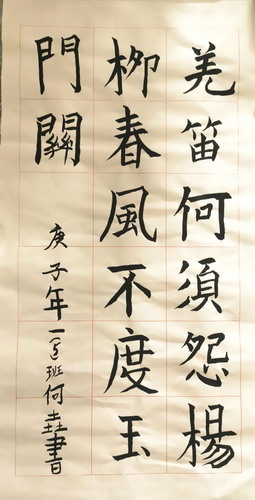 羌笛何須怨楊
柳春風不度玉
門關
庚子年一号班何垚書